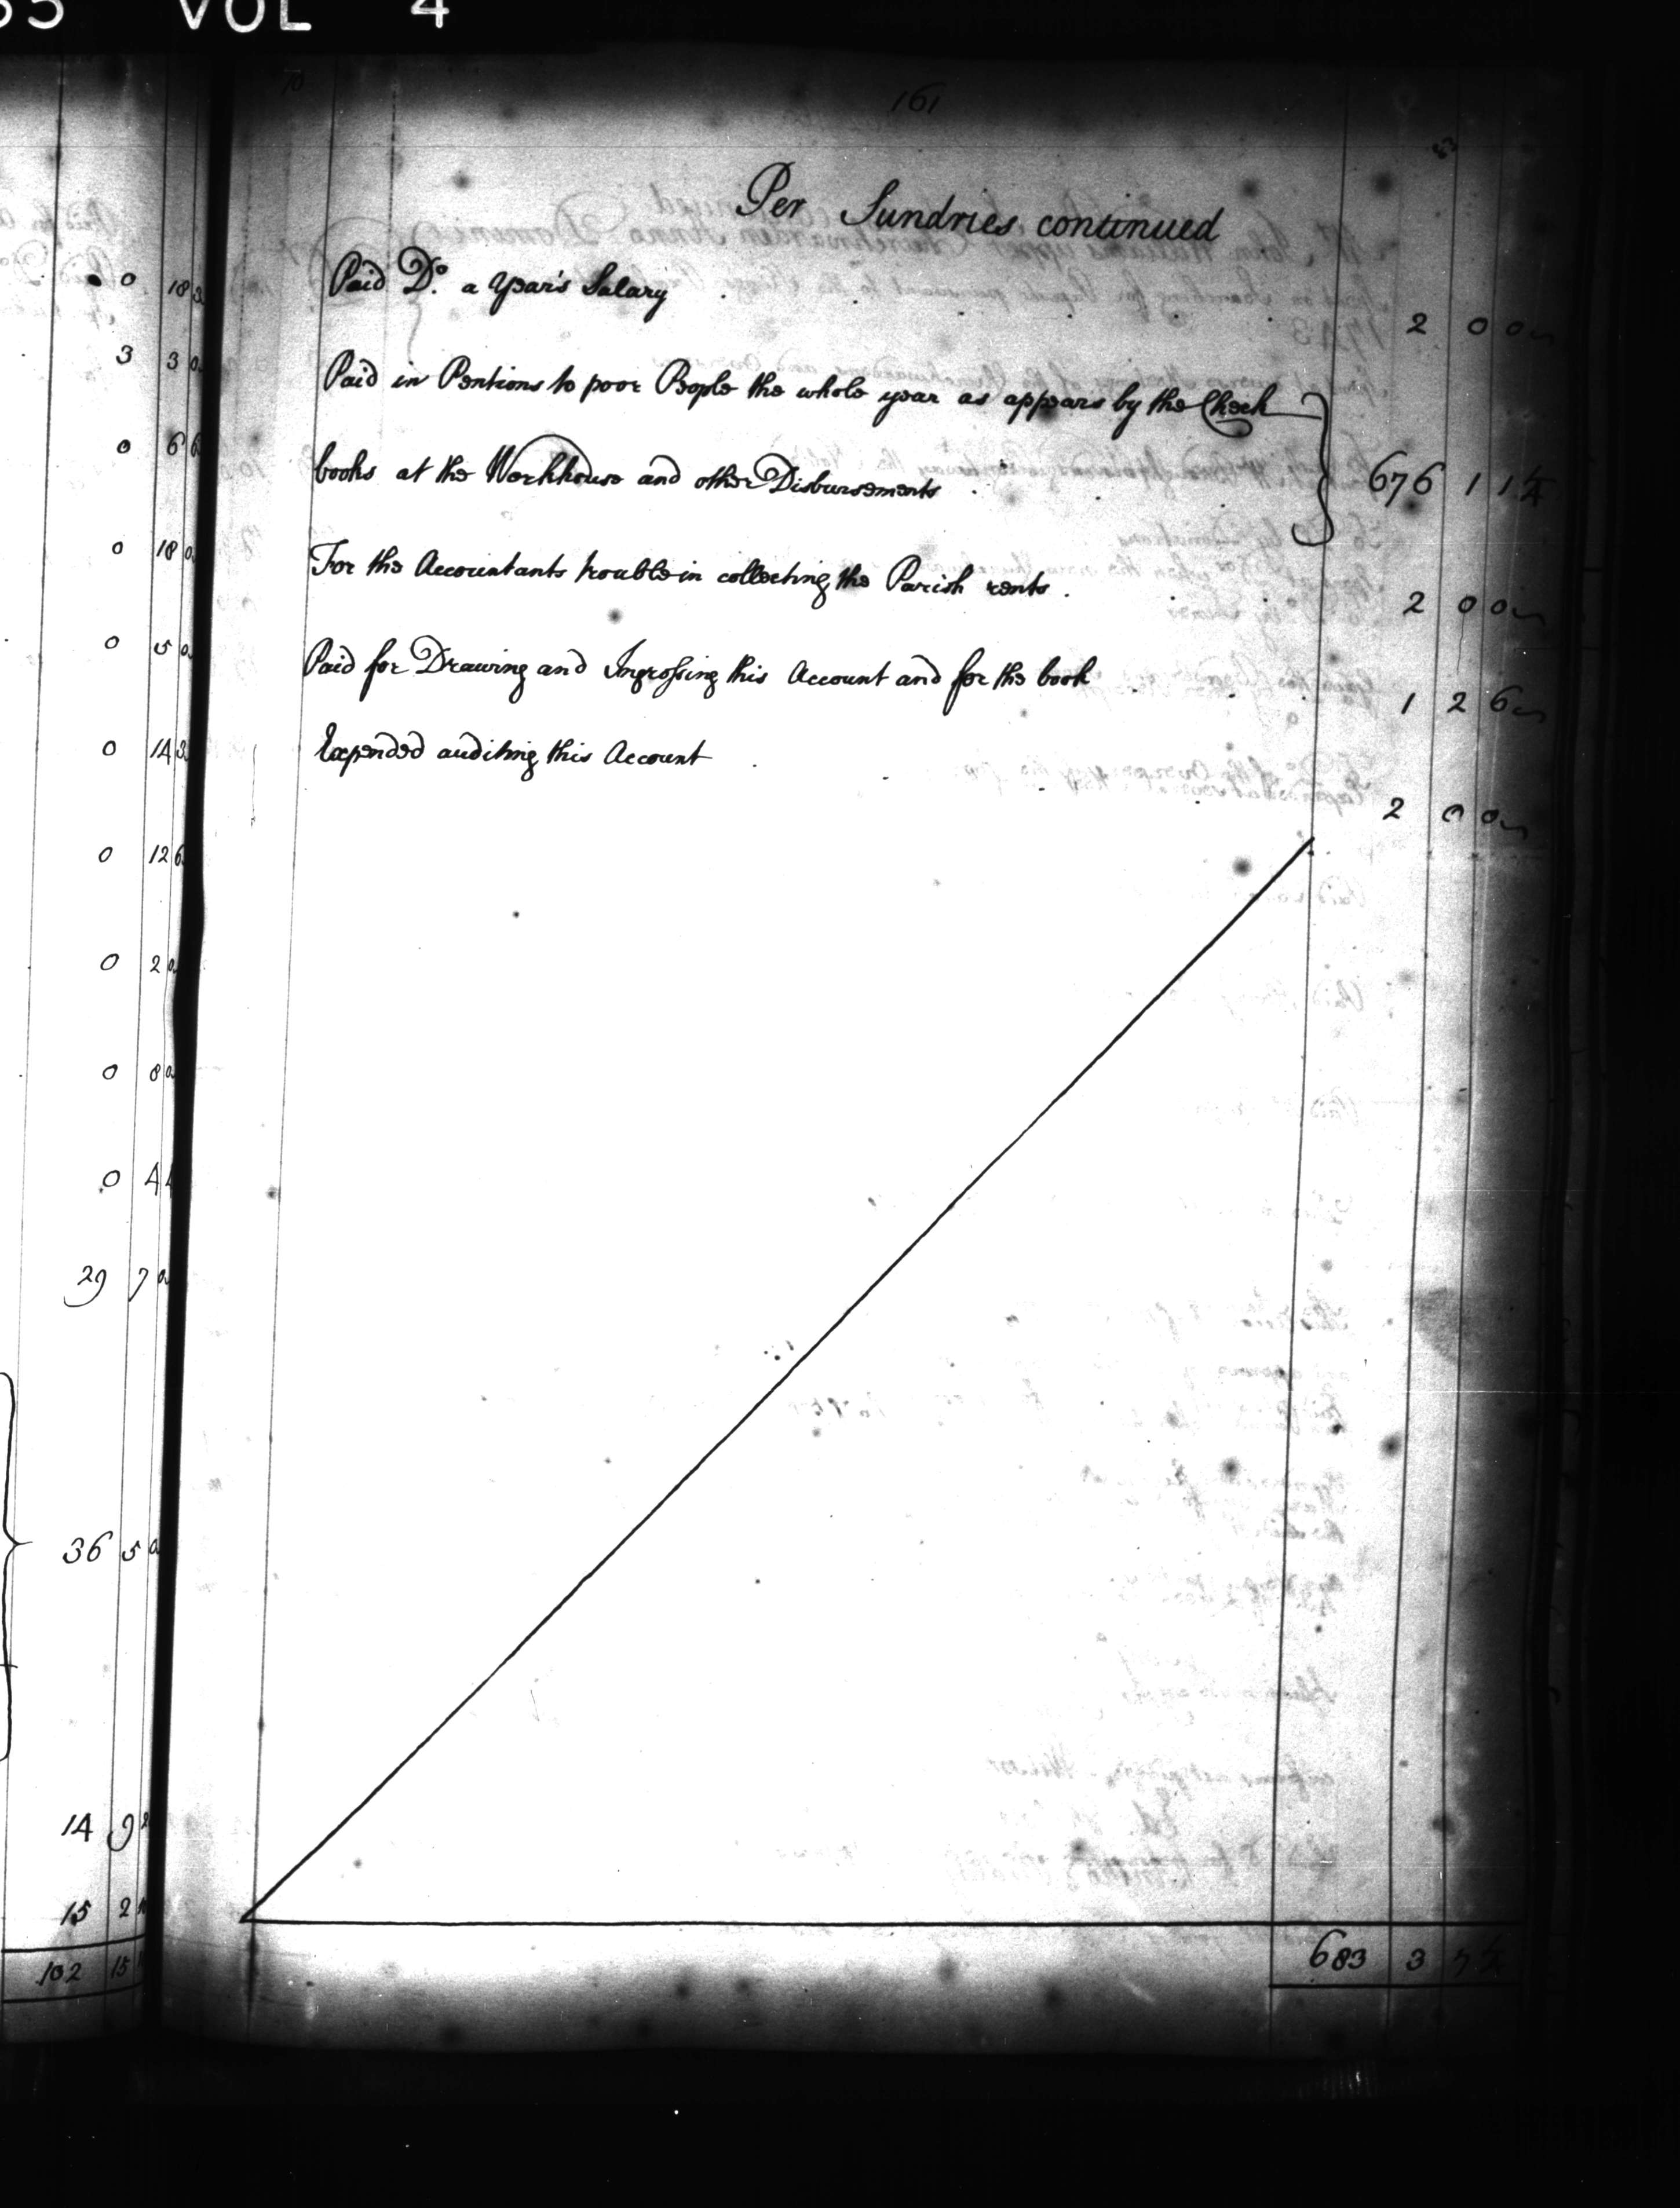 55 VOL 4
161
Per Sundries continued
Paid Do. a Year's Salary . 2 0 0
Paid in Pentions to poor People the whole year as appears by the Check
books at the Workhouse and other Disbursements . 676 1 1¼
For the Accountants trouble in collecting the Parish rents . 2 0 0
Paid for Drawing and Ingrossing this Account and for the book 1 2 6
Expended auditing this Account . 2 0 0
683 3 7¼
0 18 3
3 3 0
0 6 6
0 18 0
0 5 0
0 14 3
0 12 6
0 2 0
0 8 0
0 4
29 7 0
36 5 0
14 9
15 2
102 15